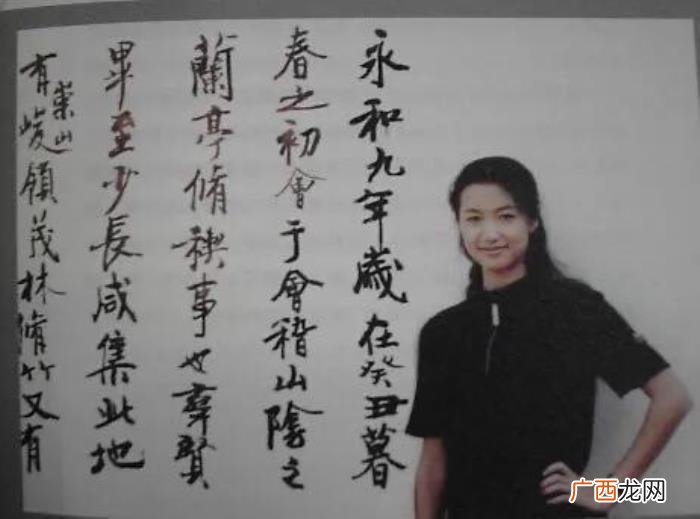 永和九年歲在癸丑暮
春之初會于會稽山陰之
蘭亭脩禊事也羣賢
畢至少長咸集此地
有崇山峻領茂林脩竹又有
广西龙网